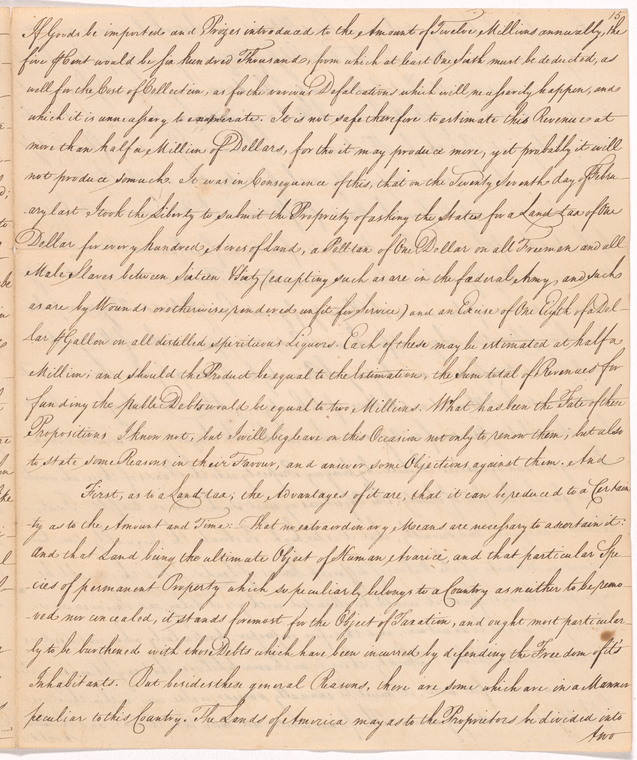 15
If Goods be imported and Prizes introduced to the Amount of Twelve Millions annually, the
five ⅌ Cent would be six hundred Thousand, from which at least One Sixth must be deducted, as
well for the Cost of Collection, as for the various Defalcations which will necessarily happen, and
which it is unnecessary to enumerate. It is not safe therefore to estimate this Revenue at
more than half a Million of Dollars, for tho it may produce more, yet probably it will
not produce so much. It was in Consequence of this, that on the Twenty Seventh day of Febru
ary last I took the Liberty to submit the Propriety of asking the States for a Land tax of One
Dollar for every hundred Acres of Land, a Poll tax of One Dollar on all Freemen and all
Male Slaves between Sixteen & Sixty (excepting such as are in the fœderal Army, and such
as are by Wounds or otherwise rendered unfit for Service) and an Excise of One Eighth of a Dol-
lar ⅌ Gallon on all distilled spirituous Liquors. Each of these may be estimated at half a
Million; and should the Product be equal to the Estimation, the Sum total of Revenues for
funding the public Debts would be equal to two Millions. What has been the Fate of these
Propositions I know not, but I will beg leave on this Occasion not only to renew them, but also
to state some Reasons in their Favour, and answer some Objections against them. And
First, as to a Land tax; the Advantages of it are, that it can be reduced to a Certain
ty as to the Amount and Time: That no extraordinary Means are necessary to ascertain it:
and that Land being the ultimate Object of Human Avarice, and that particular Spe
cies of permanent Property which so peculiarly belongs to a Country as neither to be remo-
ved nor concealed, it stands foremost for the Object of Taxation, and ought most particular-
ly to be burthened with those Debts which have been incurred by defending the Freedom of it's
Inhabitants. But besides these general Reasons, there are some which are in a Manner
peculiar to this Country. The Lands of America may as to the Proprietors be divided into
two